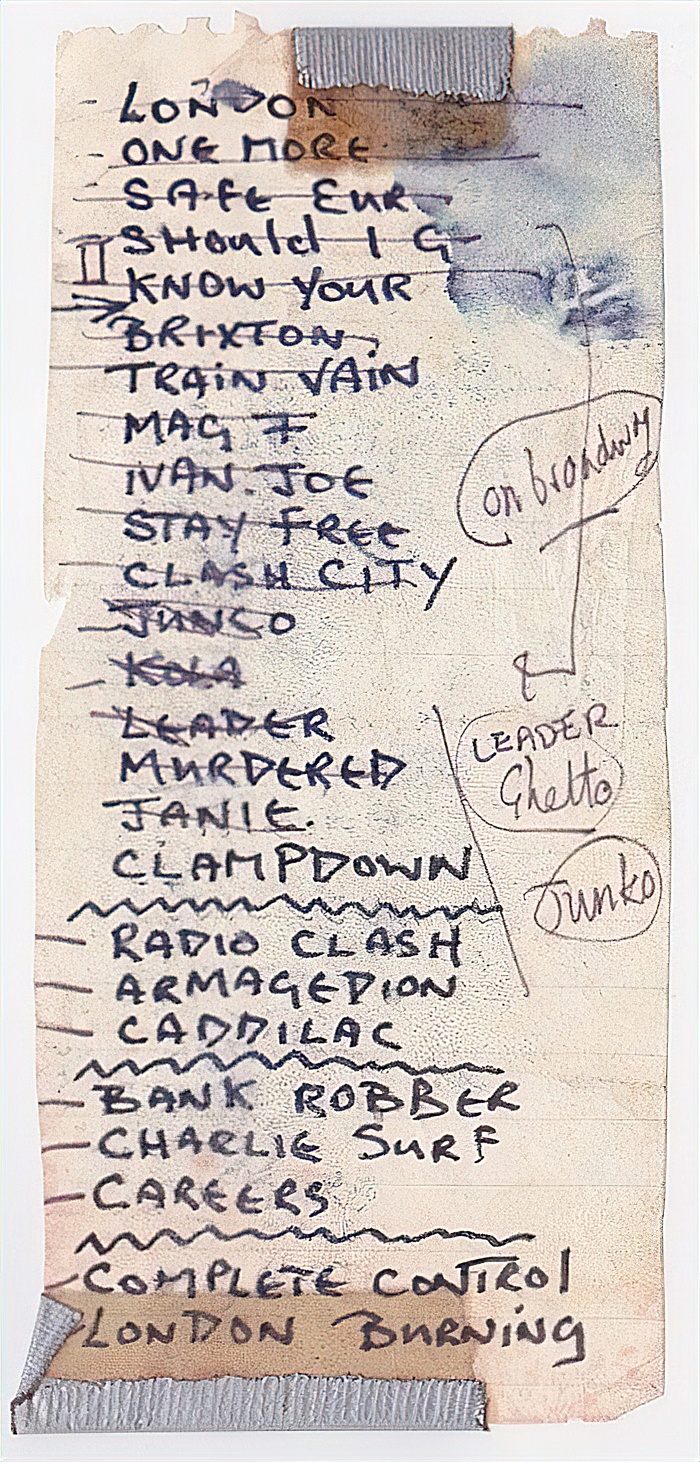 LONDON
ONE MORE
SAFE EUR.
SHould I G
II
KNOW YOUR
BRIXTON
TRAIN VAIN
MAG 7
IVAN. JOE
STAY FREE
CLASH CITY
JUNCO
KOLA
LEADER
MURDERED
JANIE.
CLAMPDOWN
RADIO CLASH
ARMAGEDION
CADDILAC
BANK ROBBER
CHARLIE SURF
CAREERS
COMPLETE CONTROl
LONDON BURNING
on broadwy
LEADER
Ghetto
Junko